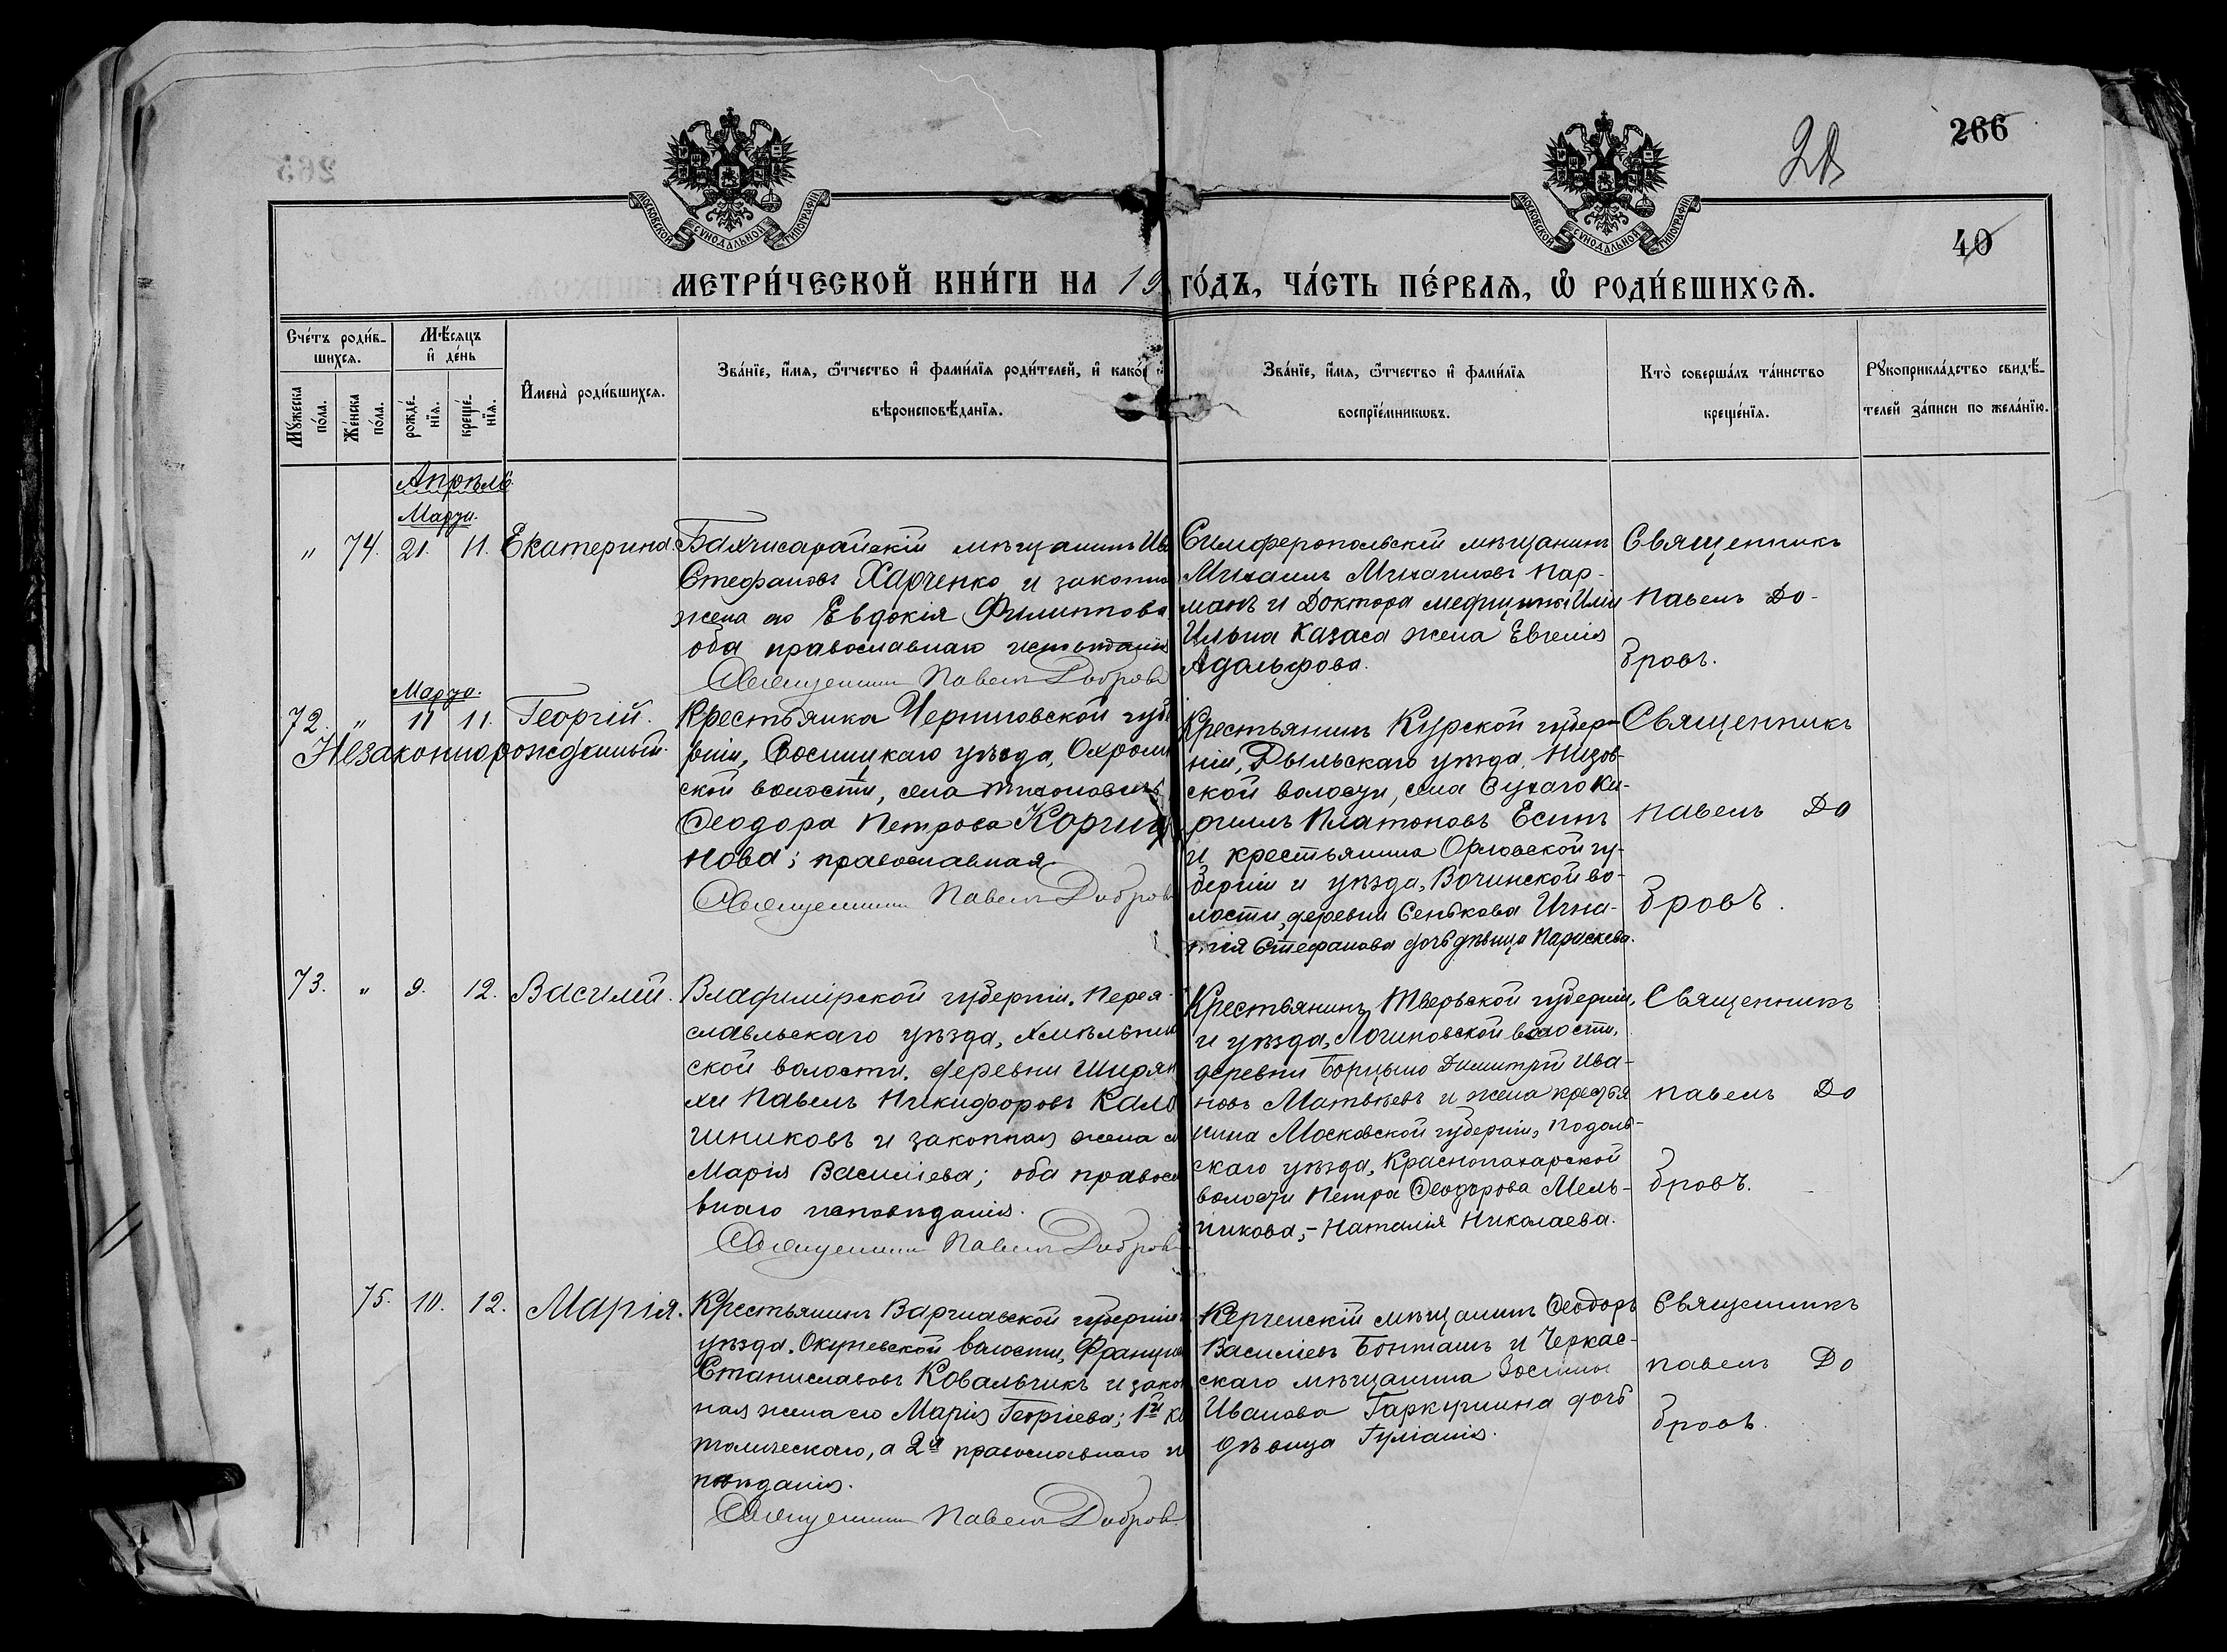 266
28
40
265
МОСКОВСКОЙ СѴНОДАЛЬНОЙ ТИПОГРАФІИ
МОСКОВСКОЙ СѴНОДАЛЬНОЙ ТИПОГРАФІИ
МЕТРИ́ЧЕСКОЙ КНИ́ГИ НА 19 ГО́ДЪ, ЧА́СТЬ ПЕ́РВАѦ, Ѡ҆ РОДИ́ВШИХСѦ.
Сче́тъ роди́в-
шихся.
Мꙋ́жеска по́ла.
Же́нска по́ла.
Мѣ́сяцъ
и҆ де́нь
рожде́-
нїя.
креще́-
нїя.
И҆мена̀ роди́вшихся.
Зва́нїе, и҆́мя, ѻ҆́тчество и҆ фами́лїя роди́телей, и҆ како́
вѣроисповѣ́данїя.
Зва́нїе, и҆́мя, ѻ҆́тчество и҆ фами́лїя
воспрїе́мникѡвъ.
Кто̀ соверша́лъ та́инство
креще́нїя.
Рꙋкоприкла́дство свидѣ́-
телей за́писи по жела́нїю.
Апрѣль
Марта.
" 74. 21. 11. Екатерина.
Бахчисарайскій мѣщанинъ Ив
Стефановъ Харченко и законна
жена его Евдокія Филиппова
оба православнаго исповѣданія
Священникъ Павелъ Добров
Симферопольскій мѣщанинъ
Михаилъ Михаиловъ Кар-
манъ и Доктора медицины Иліи
Ильича Казаса жена Евгенія
Адольфова.
Священникъ
Павелъ До-
бровъ.
Марта.
72. " 11 11. Георгій.
Незаконнорожденный.
Крестьянка Черниговской губе
рніи, Сосницкаго уѣзда, Охрам
ской волости, села Тихоновичъ
Ѳеодора Петрова Корчи
нова; православная.
Священникъ Павелъ Добров
Крестьянинъ Курской губер-
ніи, Рыльскаго уѣзда, Низов-
ской волости, села Сухаго Ки-
риллъ Платоновъ Есинъ
и крестьянина Орловской гу-
берніи и уѣзда, Вочинской во-
лости, деревни Сенькова Игна-
тія Стефанова дочь дѣвица Параскева.
Священникъ
Павелъ До
бровъ.
73. " 9. 12. Василій.
Владимірской губерніи, Перея-
славльскаго уѣзда, Хмѣльник
ской волости, деревни Ширя
хи Павелъ Никифоровъ Кала
шниковъ и законная жена е
Марія Василіева; оба правосла
внаго исповѣданія.
Священникъ Павелъ Добров
Крестьянинъ Тверской губерніи,
и уѣзда, Логиновской волости,
деревни Борцыно Димитрій Ива-
новъ Матвѣевъ и жена крестья
нина Московской губерніи, Подоль-
скаго уѣзда, Краснопахарской
волости Петра Ѳеодорова Мель-
никова, - Наталія Николаева.
Священникъ
Павелъ До
бровъ.
75. 10. 12. Марія.
Крестьянинъ Варшавской губерніи
уѣзда, Окуневской волости, Францъ
Станиславовъ Ковальчикъ и закон
ная жена его Марія Георгіева; 1й ка
толическаго, а 2я православнаго ис
повѣданія.
Священникъ Павелъ Добров
Керченскій мѣщанинъ Ѳеодоръ
Василіевъ Бонташъ и Черкас-
скаго мѣщанина Зосимы
Иванова Гаркушина дочь
дѣвица Іуліанія.
Священникъ
Павелъ До
бровъ.